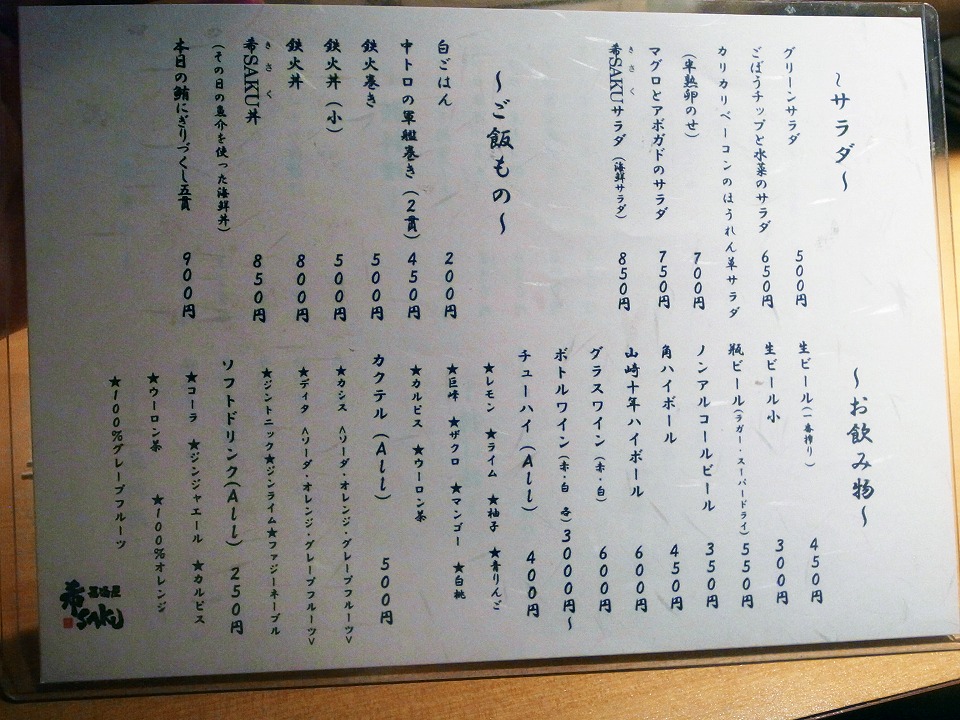 ～サラダ～
グリーンサラダ 500円
ごぼうチップと水菜のサラダ 650円
カリカリベーコンのほうれん草サラダ
(半熟卵のせ) 700円
マグロとアボガドのサラダ 750円
きさく
希SAKUサラダ(海鮮サラダ) 850円
～ご飯もの～
白ごはん 200円
中トロの軍艦巻き(2貫) 450円
鉄火巻き 500円
鉄火丼(小) 500円
鉄火丼 800円
きさく
希SAKU丼 850円
(その日の魚介を使った海鮮丼)
本日の鮪にぎりづくし五貫 900円
～お飲み物～
生ビール(一番搾り) 450円
生ビール小 300円
瓶ビール(ラガー・スーパードライ) 550円
ノンアルコールビール 350円
角ハイボール 450円
山崎十年ハイボール 600円
グラスワイン(赤・白) 600円
ボトルワイン(赤・白 各) 3000円～
チューハイ(All) 400円
★レモン ★ライム ★柚子 ★青りんご
★巨峰 ★ザクロ ★マンゴー ★白桃
★カルピス ★ウーロン茶
カクテル(All) 500円
★カシス <ソーダ・オレンジ・グレープフルーツ>
★ディタ <ソーダ・オレンジ・グレープフルーツ>
★ジントニック★ジンライム★ファジーネーブル
ソフトドリンク(All) 250円
★コーラ ★ジンジャエール ★カルピス
★ウーロン茶 ★100%オレンジ
★100%グレープフルーツ
居酒屋
希SAKU